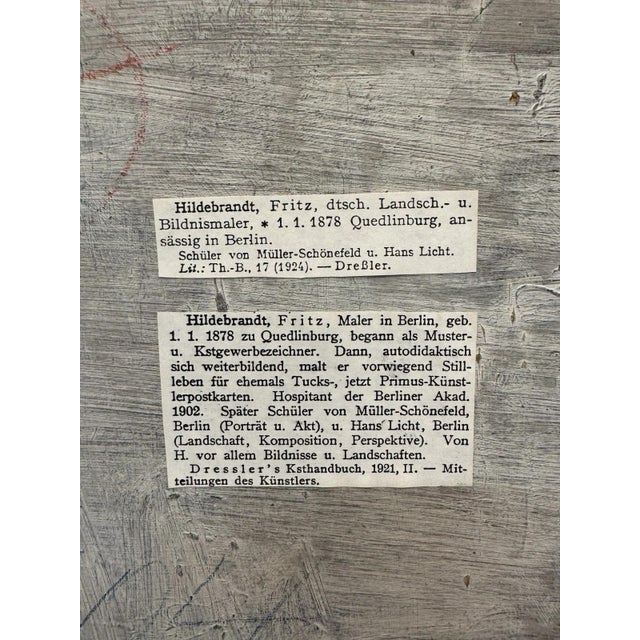 Hildebrandt, Fritz, dtsch. Landsch.- u.
Bildnismaler, * 1. 1. 1878 Quedlinburg, an-
sässig in Berlin.
Schüler von Müller-Schönefeld u. Hans Licht.
Lit.: Th.-B., 17 (1924). — Dreßler.
Hildebrandt, Fritz, Maler in Berlin, geb.
1. 1. 1878 zu Quedlinburg, begann als Muster-
u. Kstgewerbezeichner. Dann, autodidaktisch
sich weiterbildend, malt er vorwiegend Still-
leben für ehemals Tucks-, jetzt Primus-Künst-
lerpostkarten. Hospitant der Berliner Akad.
1902. Später Schüler von Müller-Schönefeld,
Berlin (Porträt u. Akt), u. Hans Licht, Berlin
(Landschaft, Komposition, Perspektive). Von
H. vor allem Bildnisse u. Landschaften.
Dressler's Ksthandbuch, 1921, II. — Mit-
teilungen des Künstlers.